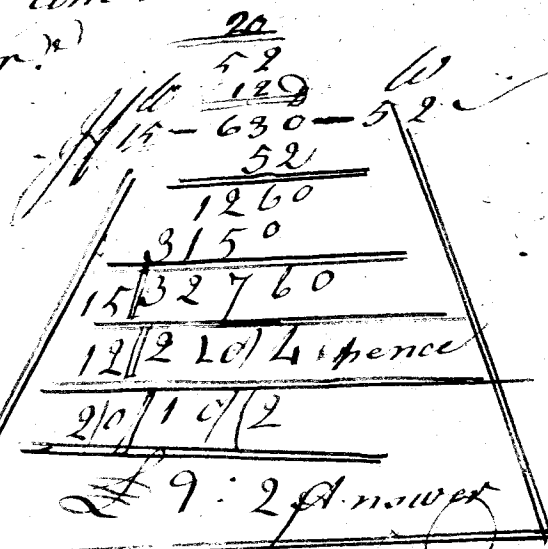 20
52
12
If W W
15 — 630 — 52
52
1260
3150
15 || 32760
12 || 210/4 pence
20/ 10/ (2
£ 9 : 2 Answer